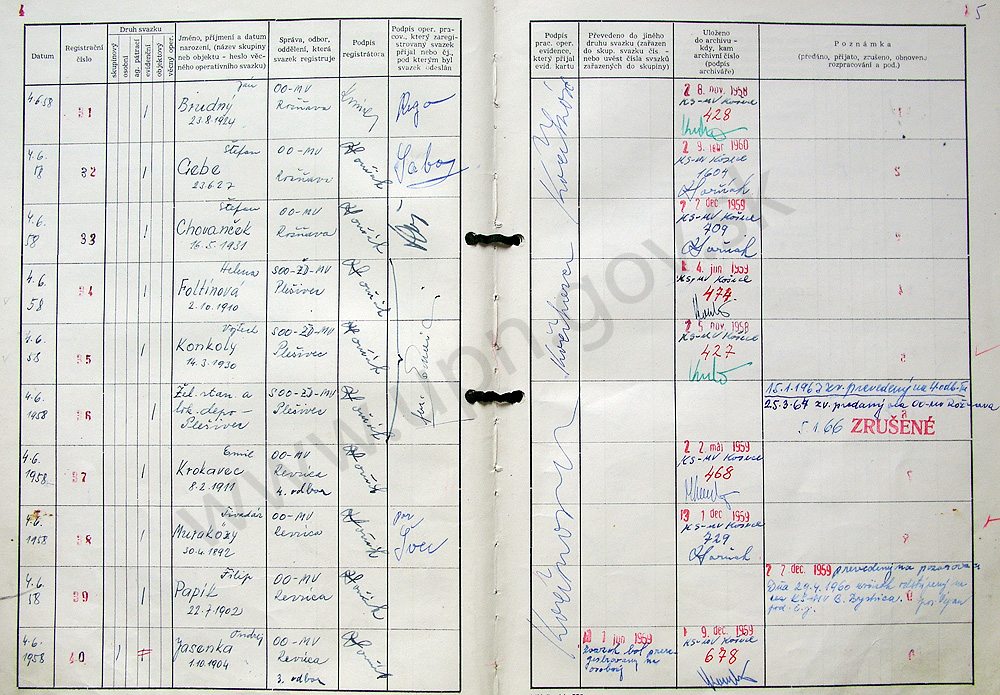 4
5
Datum
Registrační číslo
Druh svazku
skupinový
osobní
ag. pátrací
evidenční
objektový
věcný oper.
Jméno, příjmení a datum
narození, (název skupiny
neb objektu - heslo věc-
ného operativního svazku)
Správa, odbor,
oddělení, která
svazek registruje
Podpis
registrátora
Podpis oper. pra-
cov., který zaregi-
strovaný svazek
přijal nebo čj.,
pod kterým byl
svazek odeslán
Podpis
prac. oper.
evidence,
který přijal
evid. kartu
Převedeno do jiného
druhu svazku (zařazen
do skup. svazku čís. -
nebo uvést čísla svazků
zařazených do skupiny)
Uloženo
do archivu -
kdy, kam
archivní číslo
(podpis
archiváře)
Poznámka
(předáno, přijato, zrušeno, obnoveno
rozpracování a pod.)
4.6.58
31
Jan
Brudný
23.8.1924
OO-MV
Rožňava
2 8. nov. 1958
KS-MV Košice
428
4.6.
58
32
Štefan
Cebe
23.6.27
OO-MV
Rožňava
Horňák
Sabo
2 9. febr 1960
KS-MV Košice
1604
Horňák
4.6.
58
33
Štefan
Chovanček
16.5.1931
OO-MV
Rožňava
Horňák
2 2 dec 1959
KS-MV Košice
709
Horňák
4.6.
58
34
Helena
Foltínová
2.10.1910
SOO-ŽD-MV
Plešivec
Horňák
4. jún 1959
KS-MV Košice
474
4.6.
58
35
Vojtech
Konkoly
14.3.1930
SOO-ŽD-MV
Plešivec
Horňák
2 5 nov. 1958
KS-MV Košice
427
4.6.
1958
36
Žel. stan. a
lok. depo -
Plešivec
SOO-ŽD-MV
Plešivec
Horňák
15.1.1963 zv. prevedený na 4 odb.
25.3.64 zv. predaný na OO-MV Rožňava
5.1.66 ZRUŠENÉ
4.6.
1958
37
Emil
Krokavec
8.2.1911
OO-MV
Revúca
4. odbor
Horňák
2 2. máj 1959
KS-MV Košice
468
4.6.
1958
38
Tivadár
Muraközy
30.4.1892
OO-MV
Revúca
Horňák
Švec
1 dec 1959
KS-MV Košice
729
Horňák
4.6.
58
39
Filip
Papík
22.7.1902
OO-MV
Revúca
Horňák
2 2. dec. 1959 prevedený na pozorov.
Dňa 29.4.1960 zväzok odstúpený
na KS-MV B. Bystrica.
4.6.
1958
40
Ondrej
Jasenka
1.10.1904
OO-MV
Revúca
3. odbor
Horňák
1 jún 1959
zväzok bol prere-
gistrovaný na
osobný
9. dec. 1959
KS-MV Košice
678
www.upn.gov.sk